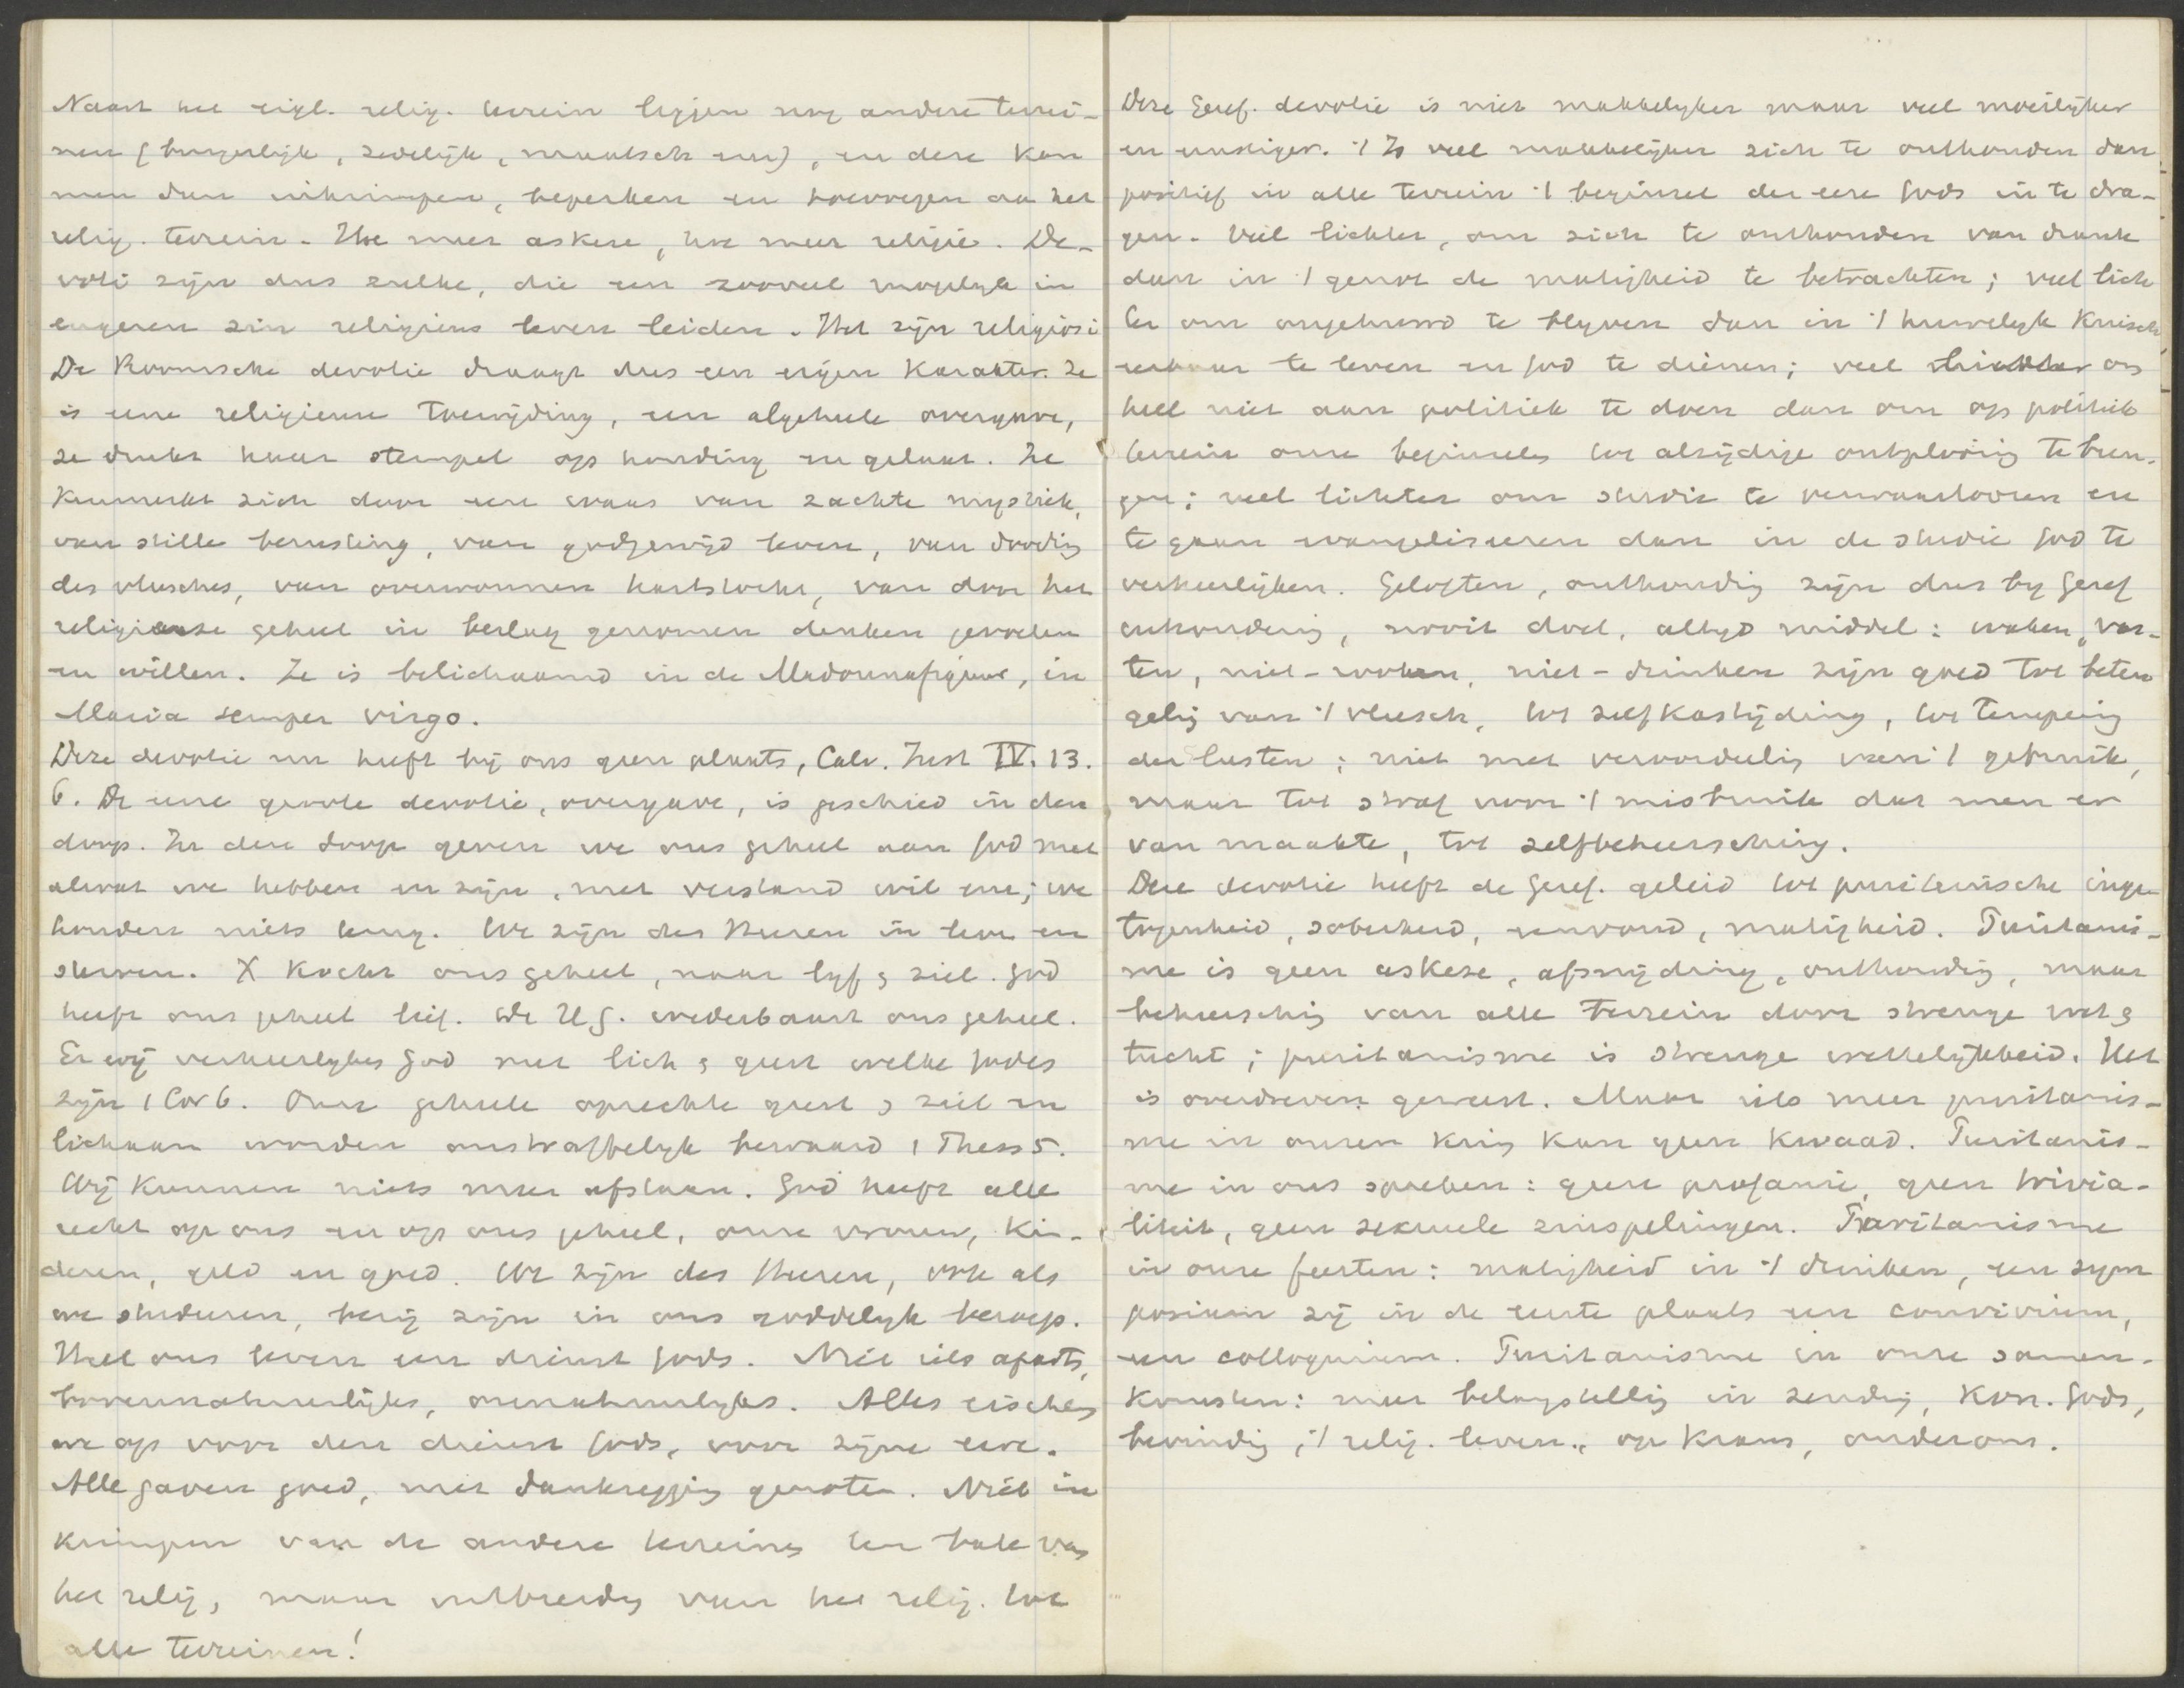 Naast het eigl. relig. terrein liggen nog andere terrei-
nen (burgerlijk, zedelijk, maatsch. enz), en deze kan
men dan inkrimpen, beperken en toevoegen aan het
relig. terrein. Hoe meer askese, hoe meer religie. De-
voti zijn dus zulke, die een zooveel mogelyk in
engeren zin religieus leven leiden. Het zijn religiosi
De Roomsche devotie draagt dus een eigen karakter. Ze
is eene religieuse toewijding, een algeheele overgave,
ze drukt haar stempel op houding en gelaat. Ze
kenmerkt zich door een waas van zachte mystiek,
van stille berusting, van godgewijd leven, van dooding
des vleesches, van overwonnen hartstocht, van door het
religieuse geheel in beslag genomen denken gevoelen
en willen. Ze is belichaamd in de Madonnafiguur, in
Maria semper virgo.
Deze devotie nu heeft bij ons geen plaats, Calv. Inst IV. 13.
6. De eene groote devotie, overgave, is geschied in den
doop. In den doop geven we ons geheel aan God met
alwat we hebben en zijn, met verstand wil enz; we
houden niets terug. We zijn des Heeren in leven en
sterven. X kocht ons geheel, naar lyf & ziel. God
heeft ons geheel lief. De H G. wederbaart ons geheel.
En wij verheerlyken God met lich & geest welke Godes
zijn 1 Cor 6. Onze geheele oprechte geest & ziel en
lichaam worden onstraffelyk bewaard 1 Thess 5.
Wij kunnen niets meer afstaan. God heeft alle
recht op ons en op ons geheel, onze vrouw, kin-
deren, geld en goed. We zijn des Heeren, ook als
we studeeren, bezig zijn in ons goddelyk beroep.
Heel ons leven een dienst Gods. Niet iets aparts,
bovennatuurlijks, onnatuurlyks. Alles eischen
we op voor den dienst Gods, voor zijne eere.
Alle gaven goed, met dankzegging genoten. Niet in
krimpen van de andere terreinen ten bate van
het relig, maar uitbreidg van het relig. tot
alle terreinen!
Deze Geref. devotie is niet makkelyker maar veel moeilyker
en ernstiger. 't Is veel makkelijker zich te onthouden dan
positief in alle terrein 't beginsel der eere Gods in te dra-
gen. Veel lichter, om zich te onthouden van drank
dan in 't genot de matigheid te betrachten; veel lich
ter om ongehuwd te blyven dan in 't huwelyk kuisch,
eerbaar te leven en God te dienen; veel lichter om
heel niet aan politiek te doen dan om op politiek
terrein onze beginselen tot alzijdige ontplooiing te bren-
gen; veel lichter om studie te verwaarloozen en
te gaan evangeliseeren dan in de studie God te
verheerlijken. Geloften, onthoudig zijn dus by Geref
onthouding, nooit doel, altyd middel: waken, vas-
ten, niet-rooken, niet-drinken zijn goed tot beteu
gelig van 't vleesch, tot zelfkastijding, tot tempering
der lusten; niet met veroordeelig van 't gebruik,
maar tot straf voor 't misbruik dat men er
van maakte, tot zelfbeheersching.
Deze devotie heeft de Geref. geleid tot puriteinsche inge
togenheid, soberheid, eenvoud, matigheid. Puritanis-
me is geen askese, afsnijding, onthoudig, maar
beheerschig van alle terrein door strenge wet &
tucht; puritanisme is strenge wettelijkheid. Het
is overdreven geweest. Maar iets meer puritanis-
me in onzen kring kan geen kwaad. Puritanis-
me in ons spreken: geen profanie, geen trivia-
liteit, geen sexueele zinspelingen. Puritanisme
in onze feesten: matigheid in 't drinken, een sym
posium zij in de eerste plaats een convivium,
een colloquium. Puritanisme in onze samen-
komsten: meer belangstellig in zending, Kon. Gods,
bevindig, 't relig. leven, op krans, onder ons.